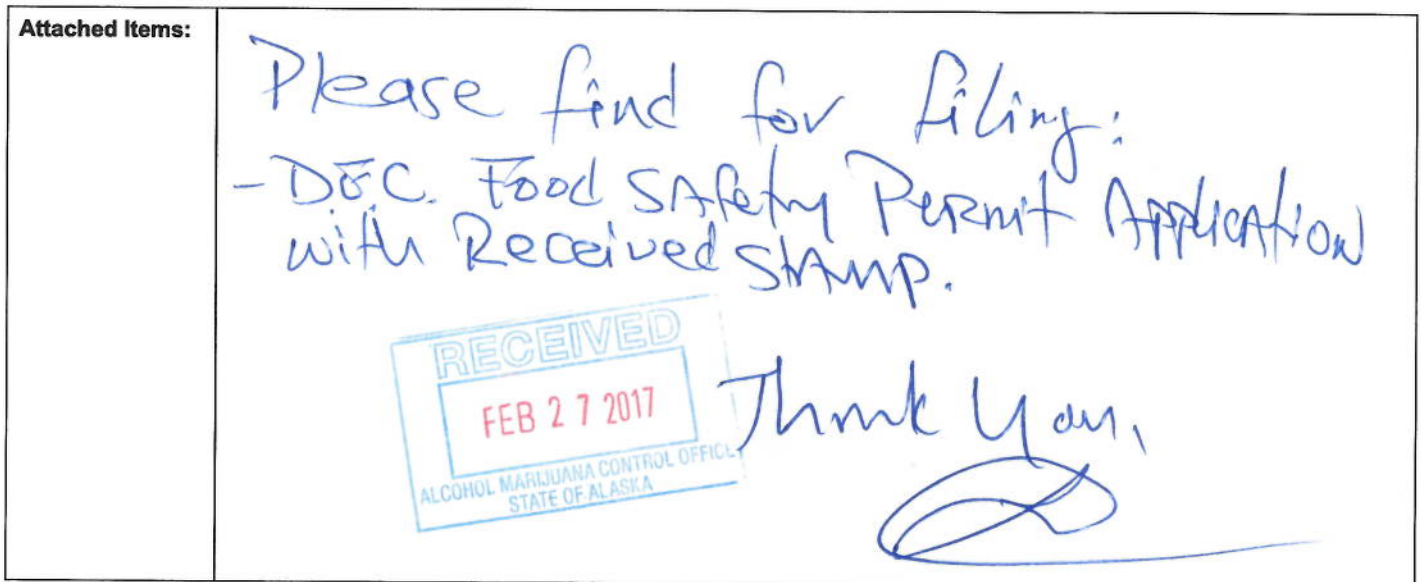 Attached Items:
Please find for filing:
- DEC. Food SAfety Permit Application
with Received Stamp.
RECEIVED
FEB 27 2017
ALCOHOL MARIJUANA CONTROL OFFICE
STATE OF ALASKA
Thank You,